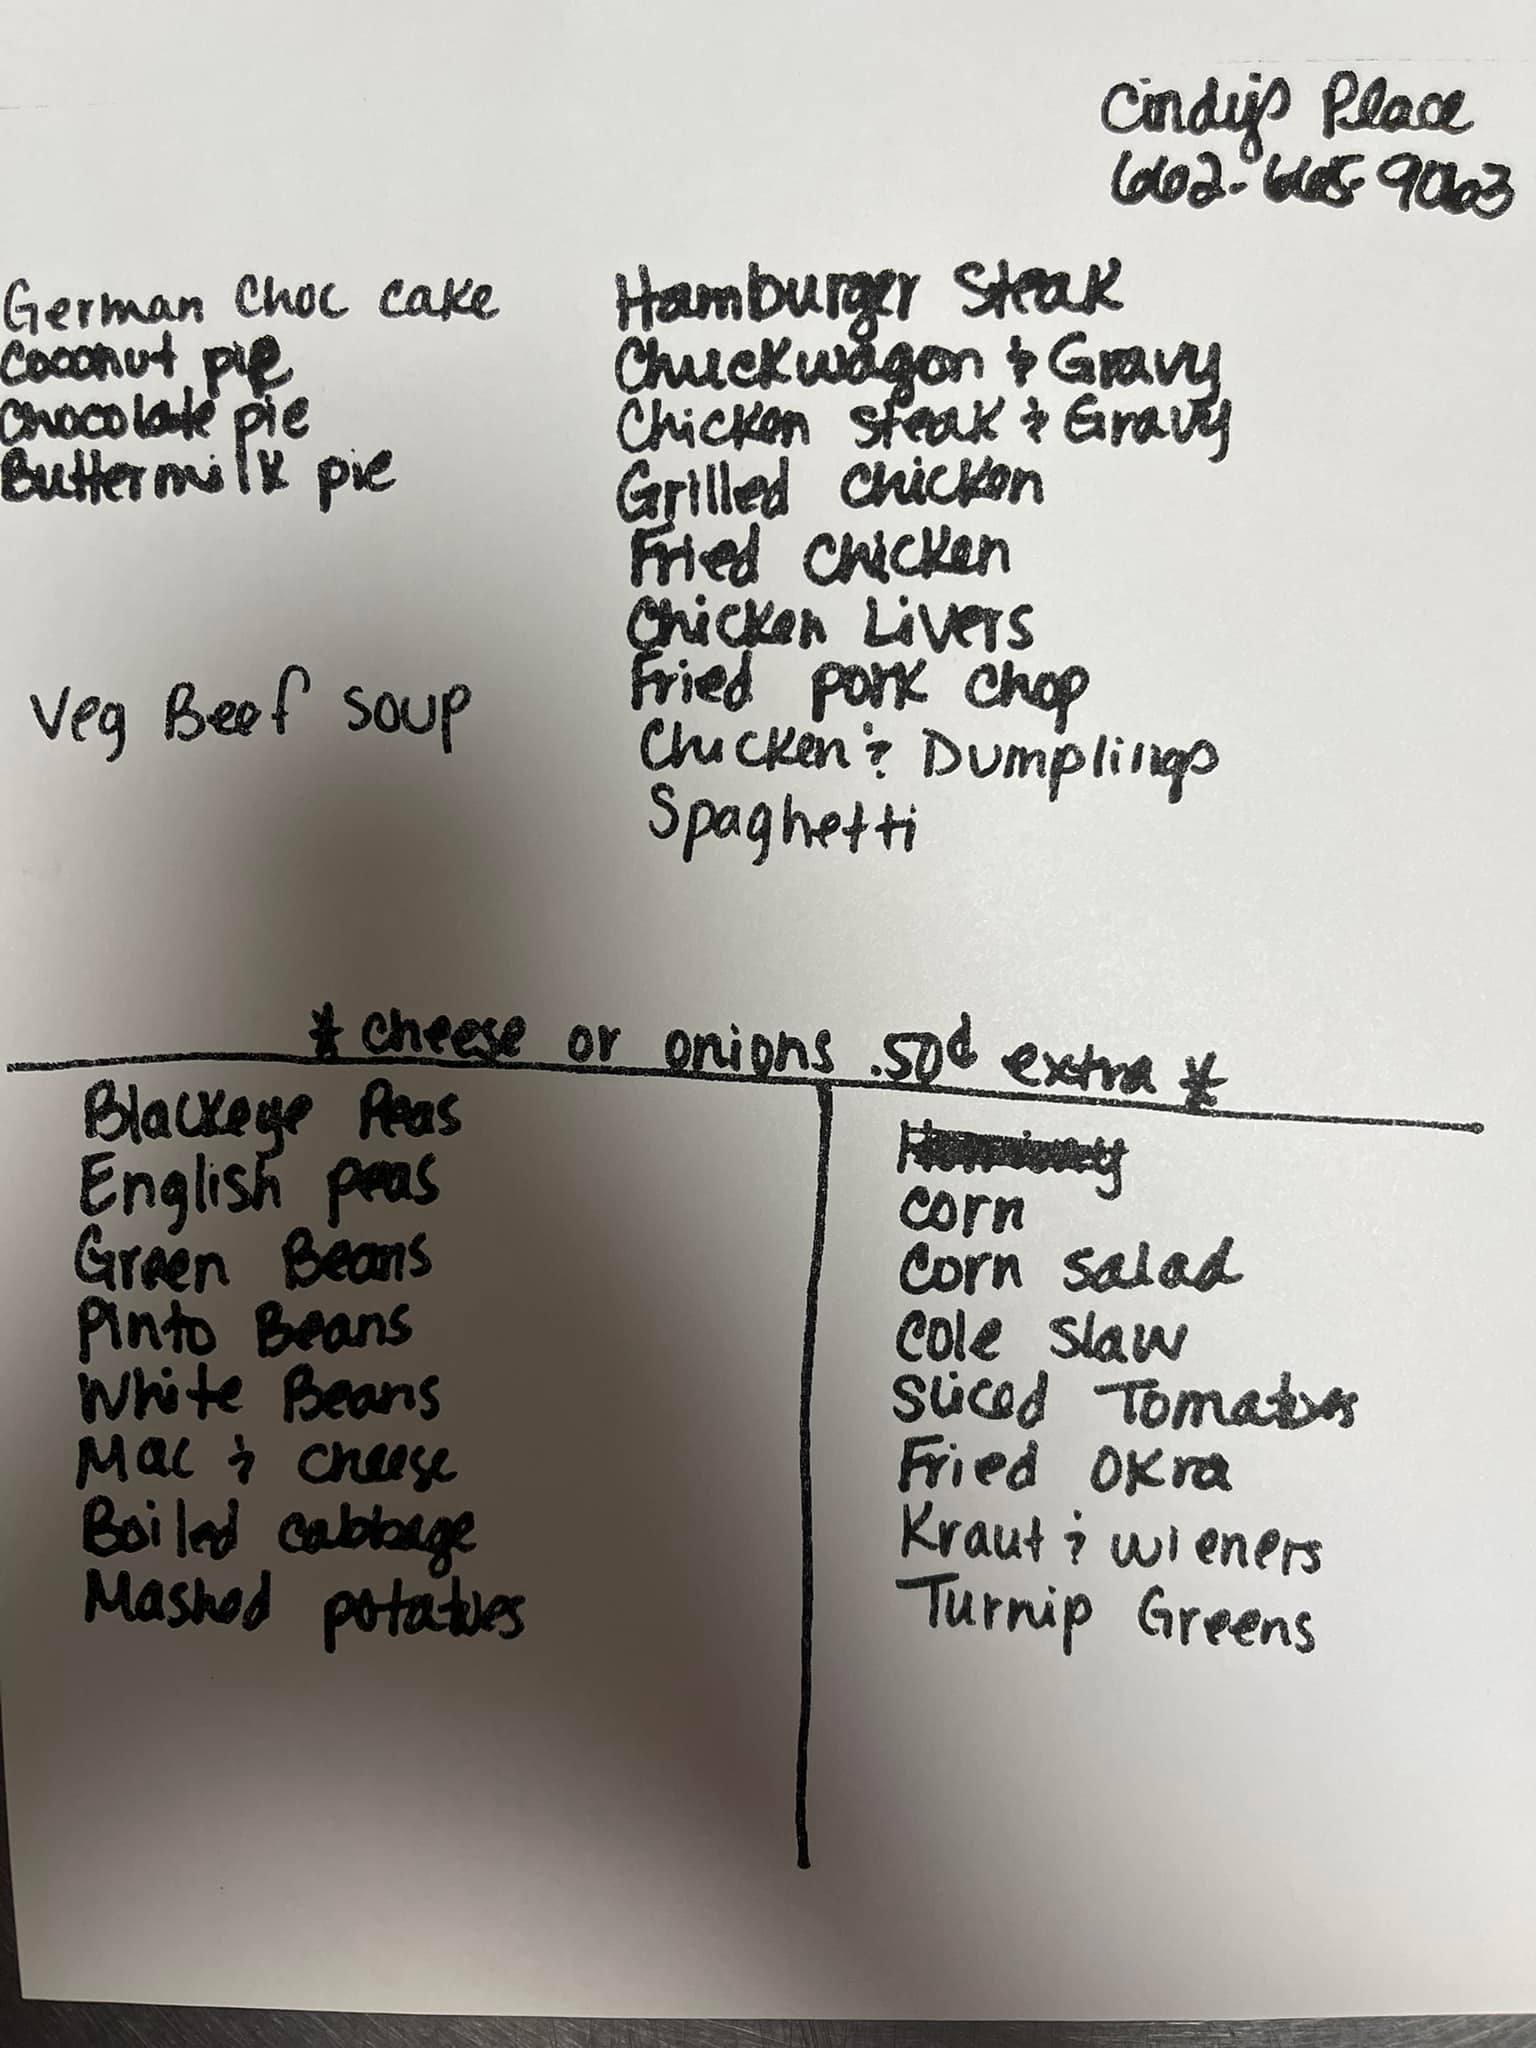 Cindy's Place
662-665-9063
German Choc cake
Coconut pie
Chocolate pie
Buttermilk pie
Veg Beef soup
Hamburger Steak
Chuckwagon & Gravy
Chicken steak & Gravy
Grilled chicken
Fried chicken
Chicken Livers
Fried pork chop
Chicken & Dumplings
Spaghetti
* cheese or onions .50¢ extra *
Blackeye Peas
English peas
Green Beans
Pinto Beans
White Beans
Mac & cheese
Boiled cabbage
Mashed potatoes
corn
corn salad
cole slaw
sliced Tomatoes
Fried okra
Kraut & wieners
Turnip Greens